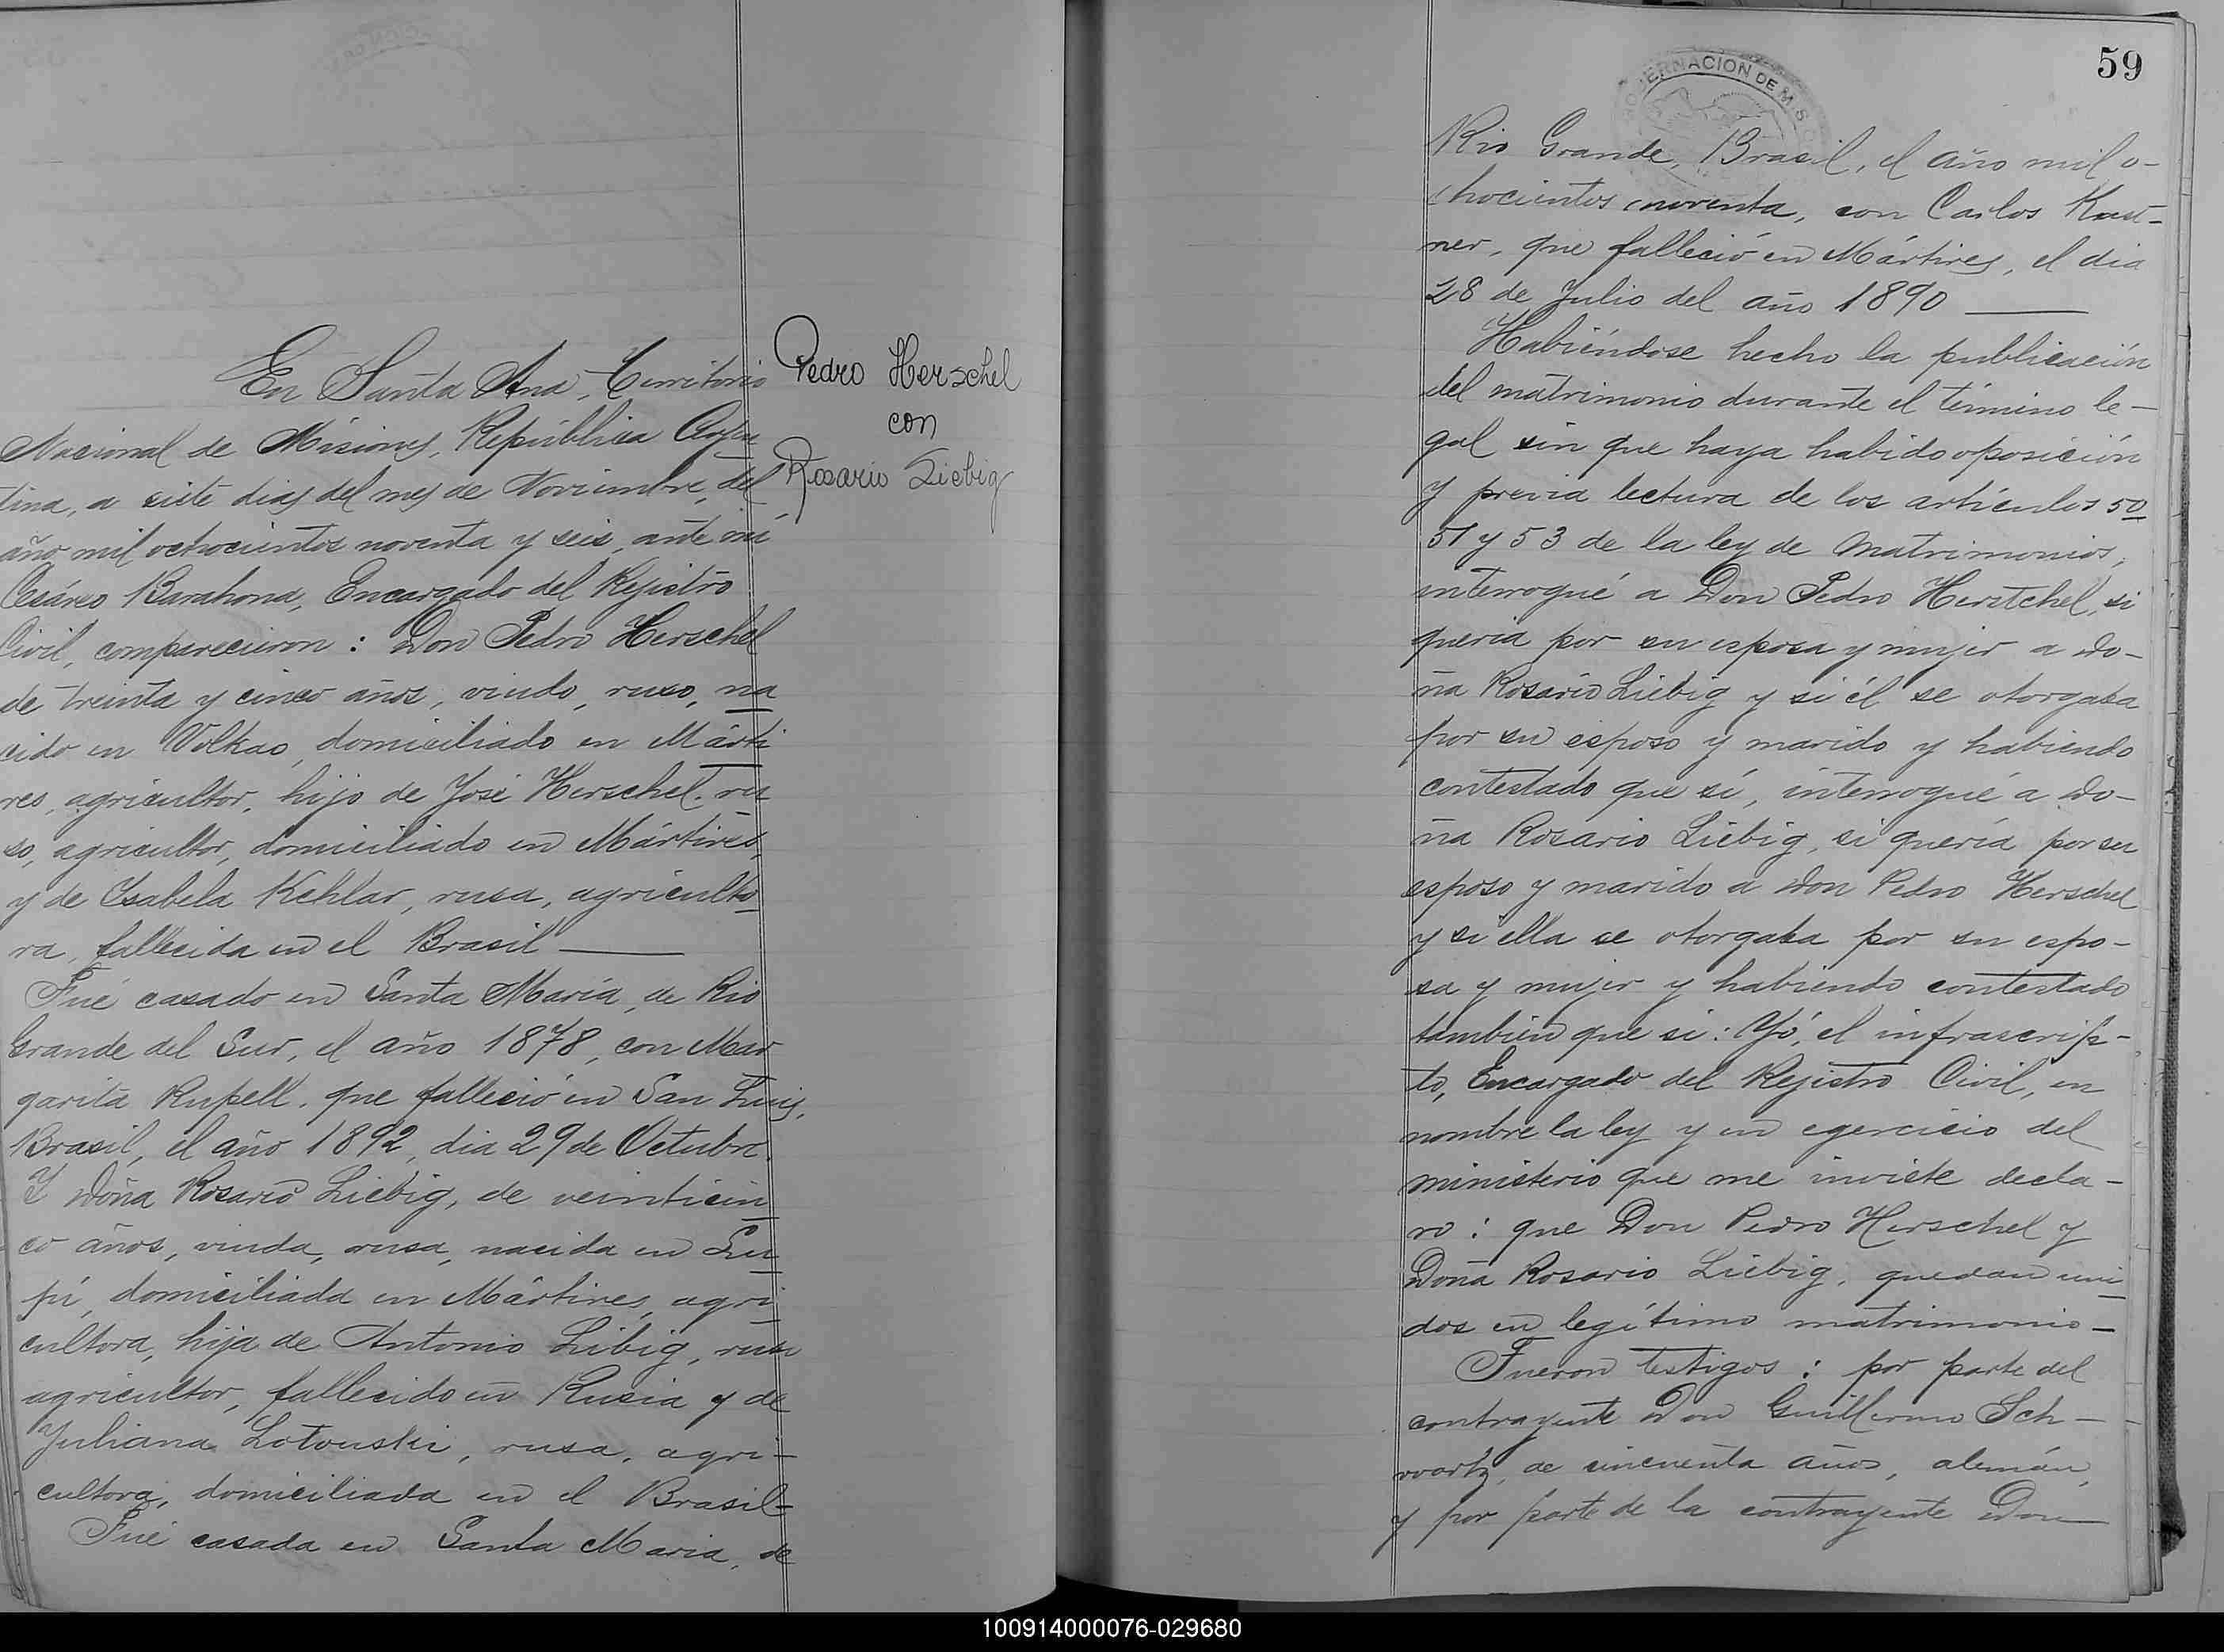 En Santa Ana, Territorio
Nacional de Misiones, República Argen
tina, a siete dias del mes de Noviembre, del
año mil ochocientos noventa y seis, ante mi
Cesáreo Barahona, Encargado del Rejistro
Civil, comparecieron: Don Pedro Herschel
de treinta y cinco años, viudo, ruso, na
cido en Volkao, domiciliado en Márti
res, agricultor, hijo de José Herschel, ru
so, agricultor, domiciliado en Mártires,
y de Ysabela Kehlar, rusa, agriculto
ra, fallecida en el Brasil
Fué casado en Santa María, de Rio
Grande del Sur, el año 1878, con Mar
garita Rupell, que falleció en San Luis,
Brasil, el año 1892, dia 29 de Octubre.
Y Doña Rosario Liebig, de veinticin
co años, viuda, rusa, nacida en Lu
pí, domiciliada en Mártires, agri
cultora, hija de Antonio Libig, ruso
agricultor, fallecido en Rusia y de
Juliana Lotouski, rusa, agri-
cultora, domiciliada en el Brasil-
Fué casada en Santa Maria, de
Pedro Herschel
con
Rosario Liebig
59
GOBERNACION DE MIS
Rio Grande, Brasil, el año mil o-
chocientos noventa, con Carlos Kast-
ner, que falleció en Mártires, el dia
28 de Julio del año 1890
Habiéndose hecho la publicación
del matrimonio durante el término le-
gal sin que haya habido oposición
y previa lectura de los artículos 50
51 y 53 de la ley de Matrimonios,
interrogué a Don Pedro Herstchel, si
queria por su esposa y mujer a Do-
ña Rosario Liebig y si él se otorgaba
por su esposo y marido y habiendo
contestado que sí, interrogué a Do-
ña Rosario Liebig, si quería por su
esposo y marido a Don Pedro Herschel
y si ella se otorgaba por su espo-
sa y mujer y habiendo contestado
tambien que si: Yó, el infrascrip-
to, Encargado del Rejistro Civil, en
nombre la ley y en egercicio del
ministerio que me inviste decla-
ro: que Don Pedro Herschel y
Doña Rosario Liebig, quedan uni
dos en legítimo matrimonio-
Fueron testigos: por parte del
contrayente Don Guillermo Sch-
wartz, de cincuenta años, alemán,
y por parte de la contrayente Don
100914000076-029680